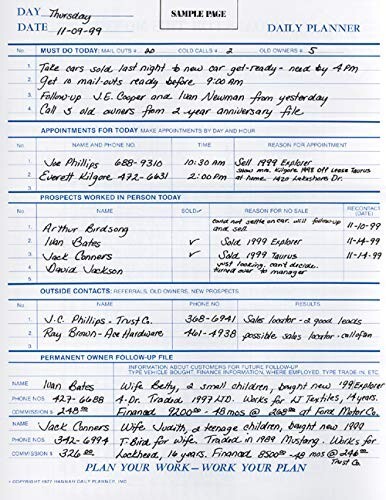 DAY Thursday SAMPLE PAGE
DATE 11-09-99 DAILY PLANNER
No. MUST DO TODAY: MAIL OUTS # 20 COLD CALLS # 2 OLD OWNERS # 5
1 Take cars sold last night to new car get-ready - need by 4 PM
2 Get 10 mail-outs ready before 9:00 AM
3 Follow-up J.E. Cooper and Ivan Newman from yesterday
4 Call 5 old owners from 2-year anniversary file
APPOINTMENTS FOR TODAY MAKE APPOINTMENTS BY DAY AND HOUR
No. NAME AND PHONE NO. TIME REASON FOR APPOINTMENT
1. Joe Phillips 688-9310 10:30 AM Sell 1999 Explorer
2. Everett Kilgore 472-6631 2:00 PM Show mrs. Kilgore 1998 Off Lease Taurus
at home. 1420 Lakeshore Dr.
3.
PROSPECTS WORKED IN PERSON TODAY
No. NAME SOLD✓ REASON FOR NO SALE RECONTACT (DATE)
1 Arthur Birdsong could not settle on car. will follow-up and sell 11-10-99
2 Ivan Bates ✓ Sold 1999 Explorer 11-14-99
3 Jack Conners ✓ Sold 1999 Taurus 11-14-99
4 David Jackson just looking. can't decide. turned over to manager
OUTSIDE CONTACTS: REFERRALS, OLD OWNERS, NEW PROSPECTS
No. NAME PHONE NO. RESULTS
1 J.C. Phillips - Trust Co. 368-6941 Sales locator - 2 good leads
2 Ray Brown - Ace Hardware 461-4938 possible sales locator - call often
3
PERMANENT OWNER FOLLOW-UP FILE
INFORMATION ABOUT CUSTOMERS FOR FUTURE FOLLOW-UP
TYPE VEHICLE BOUGHT, FINANCE INFORMATION, WHERE EMPLOYED, TYPE TRADED IN, ETC.
NAME Ivan Bates Wife Betty, 2 small children, bought new '99 Explorer
PHONE NOS 427-6688 4-Dr. Traded 1997 LTD. Works for Textiles, 14 years.
COMMISSION $ 248.00 Financed 9200.00 - 48 mos @ at Ford Motor Co.
NAME Jack Conners Wife Judith, 2 teenage children, bought new 1999
PHONE NOS. 342-6994 T-Bird for Wife. Traded in 1989 Mustang. Works for
COMMISSION $ 326.00 Lockheed, 16 years. Financed 8500.00 - 48 mos @ Trust Co.
PLAN YOUR WORK—WORK YOUR PLAN
COPYRIGHT 1977 HANNAH DAILY PLANNER, INC.